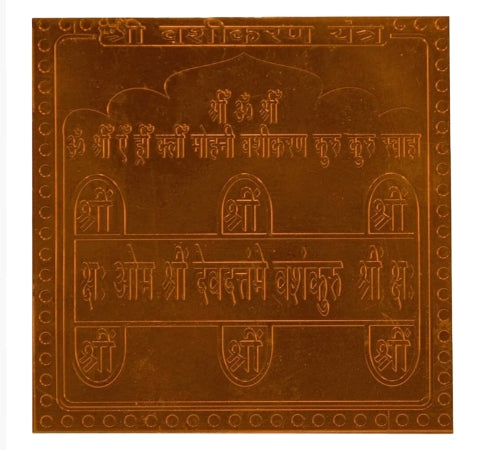 श्री वशीकरण यंत्र
श्रीँ ॐ श्रीँ
ॐ श्रीँ ऐँ ह्रीँ क्लीँ मोहनी वशीकरण कुरु कुरु स्वाहा
श्रीं श्रीं श्रीं
क्षः ओम श्रीं देवदत्तंमे वशंकुरु श्रीं क्षः
श्रीं श्रीं श्रीं